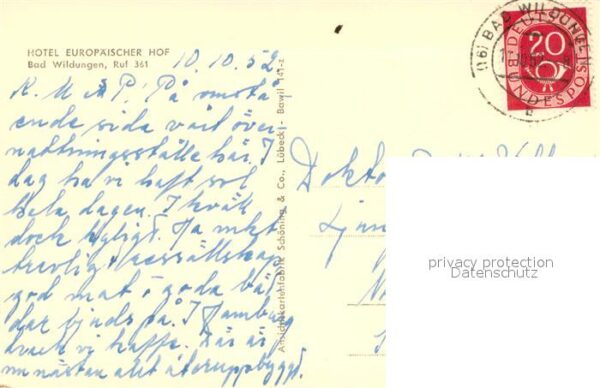 HOTEL EUROPÄISCHER HOF
Bad Wildungen, Ruf 361
10.10.52
K. M & P! På omstå
ende sida vårt över
nattningsställe här. I
dag ha vi haft sol
hela dagen. I kväll
dock kyligt. Ja mkt
trevligt ressällskap
god mat o goda bä
dar bjuds på. I Hamburg
drack vi kaffe. Där är
nu nästan allt återuppbyggt.
Ansichtskartenfabrik Schöning & Co., Lübeck · Bawil 141-z
Dokto
(16) BAD WILDUNGEN
DEUTSCHE
BUNDESPOST
20
privacy protection
Datenschutz